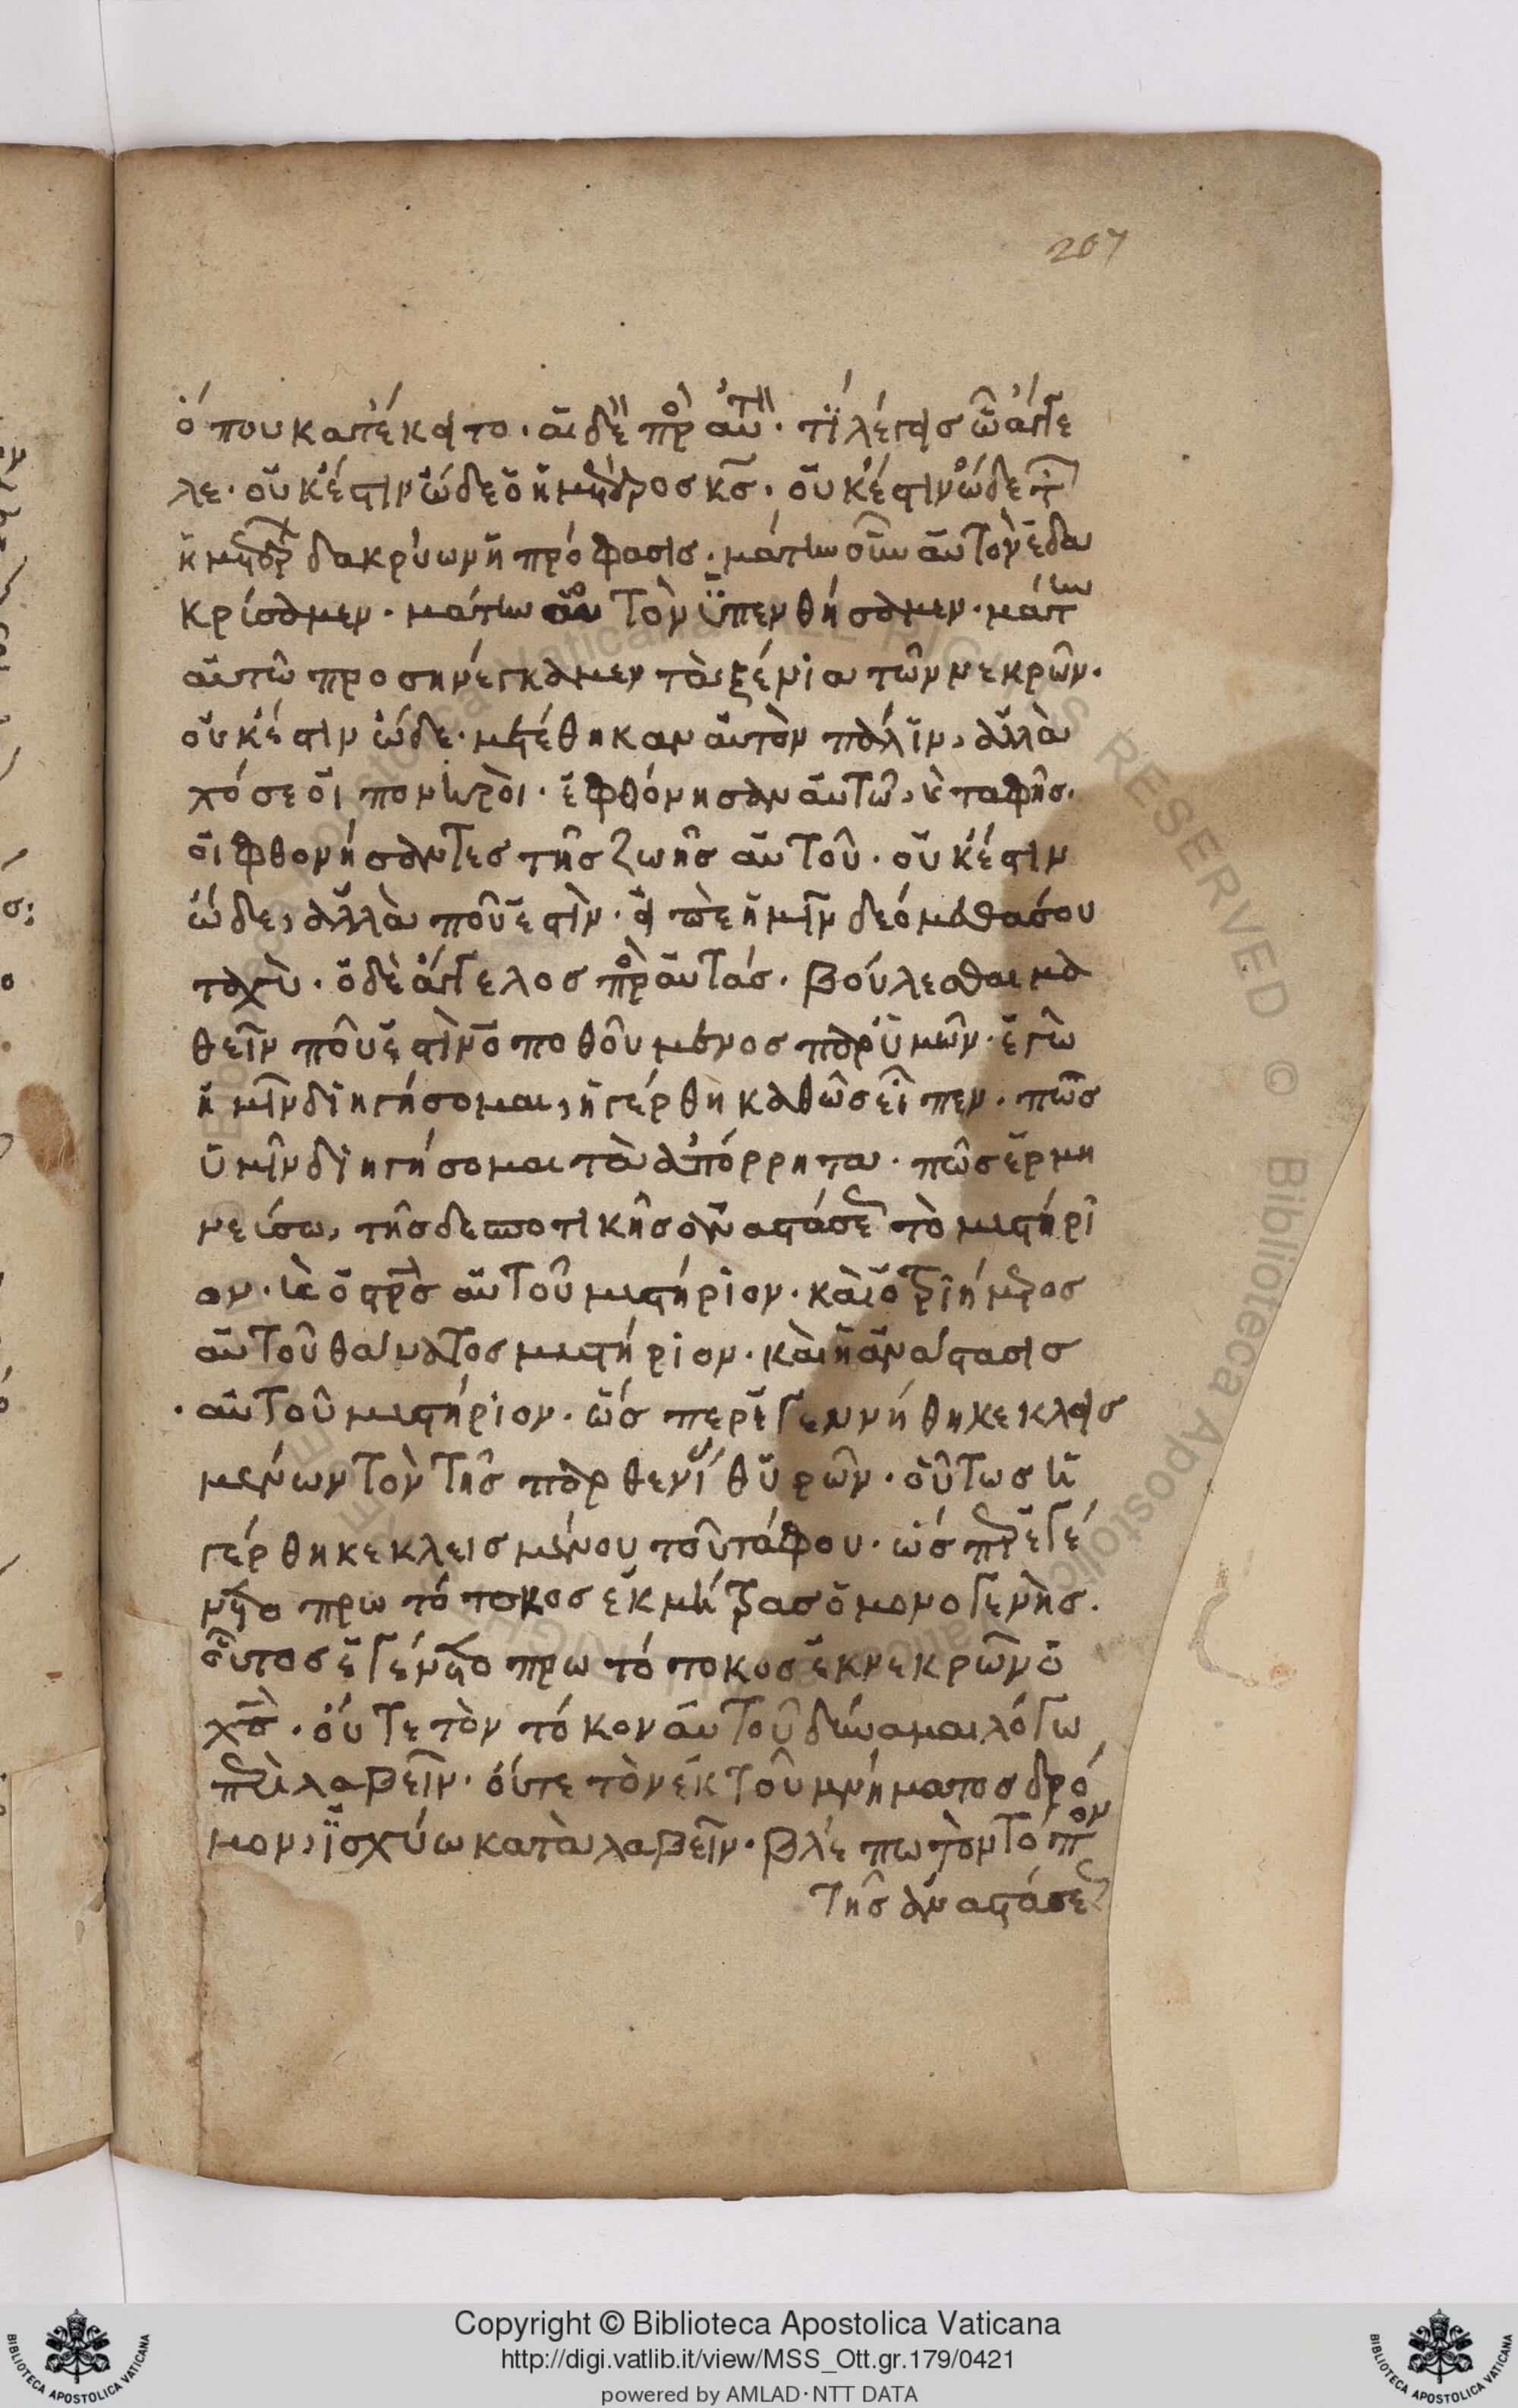 207
ὅπου κατέκειτο. αἱ δὲ πρὸ αὐτὸ. τί λέγεις ὦ ἄγγε
λε. οὐκ ἔστιν ὧδε ὁ ἡμέτερος κς. οὐκ ἔστιν ὧδε τ
ἡμετέρ δακρύων ἡ πρόφασις. μάτην οὖν αὐτὸν ἐδα
κρίσαμεν. μάτην αὐτὸν ὑπενθήσαμεν. μάτην
αὐτῶ προσηνέγκαμεν τὰ ξένια τῶν νεκρῶν.
οὐκ ἔστιν ὧδε. μετέθηκαν αὐτὸν πάλιν, ἀλλὰ
χόσε οἱ πονηροὶ. ἐφθόνησαν αὐτῶ, κὲ ταφῆς.
οἱ φθονήσαντες τῆς ζωῆς αὐτοῦ. οὐκ ἔστιν
ὧδε, ἀλλὰ ποῦ ἐστὶν. εἰπὲ ἡμῖν δεόμεθα σου
ταχὺ. ὁ δὲ ἄγγελος πρὸ αὐτάς. βούλεσθαι μα
θεῖν ποῦ ἐστὶν ὁ ποθούμενος παρ ὑμῶν. ἐγὼ
ἡμῖν διηγήσομαι, ἠγέρθη καθὼς εἶπεν. πῶς
ὑμῖν διηγήσομαι τὰ ἀπόρρητα. πῶς ἑρμη
νείσω, τῆς δεσποτικῆς ἀναστάσε τὸ μιστήρι
ον. κὲ ὁ στρὸς αὐτοῦ μιστήριον. καὶ ὁ τριήμερος
αὐτοῦ θάνατος μιστήριον. καὶ ἡ ἀνάστασις
αὐτοῦ μιστήριον. ὥσπερ ἐγεννήθη κεκλεισ
μένων τὸν τῆς παρθενί θυρῶν. οὕτως ἠ
γέρθη κεκλεισμένου τοῦ τάφου. ὥσπερ ἐγέ
νετο πρωτότοκος ἐκ μήτρας ὁ μονογενὴς.
οὕτος ἐγένετο πρωτότοκος ἐκ νεκρῶν ὁ
χς. οὔτε τὸν τόκον αὐτοῦ δύναμαι λόγω
περιλαβεῖν. οὔτε τὸν ἐκ τοῦ μνήματος δρό
μον, ἰσχύω καταλαβεῖν. βλέπω τὸν τόπον
τῆς ἀναστάσε
Copyright © Biblioteca Apostolica Vaticana
http://digi.vatlib.it/view/MSS_Ott.gr.179/0421
powered by AMLAD·NTT DATA